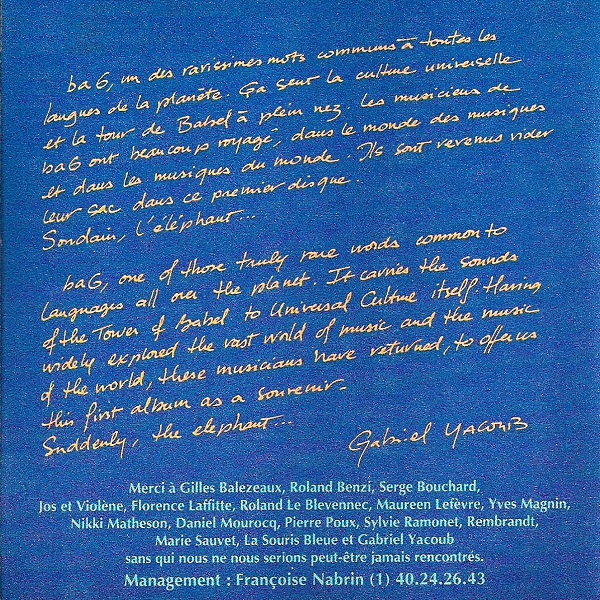 baG, un des rarissimes mots communs à toutes les
langues de la planète. Ça sent la culture universelle
et la tour de Babel à plein nez. Les musiciens de
baG ont beaucoup voyagé, dans le monde des musiques
et dans les musiques du monde. Ils sont revenus vider
leur sac dans ce premier disque.
Soudain, l'éléphant...
baG, one of those truly rare words common to
languages all over the planet. It carries the sounds
of the Tower of Babel to Universal Culture itself. Having
widely explored the vast world of music and the music
of the world, these musicians have returned, to offer us
this first album as a souvenir.
Suddenly, the elephant...
Gabriel YACOUB
Merci à Gilles Balezeaux, Roland Benzi, Serge Bouchard,
Jos et Violène, Florence Laffitte, Roland Le Blevennec, Maureen Lefèvre, Yves Magnin,
Nikki Matheson, Daniel Mourocq, Pierre Poux, Sylvie Ramonet, Rembrandt,
Marie Sauvet, La Souris Bleue et Gabriel Yacoub
sans qui nous ne nous serions peut-être jamais rencontrés.
Management : Françoise Nabrin (1) 40.24.26.43